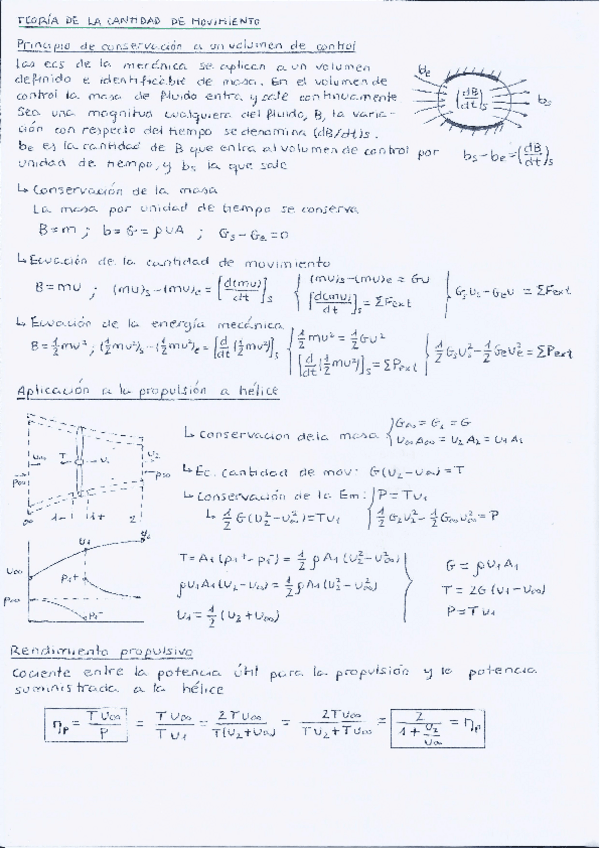 TEORÍA DE LA CANTIDAD DE MOVIMIENTO
Principio de conservación a un volumen de control
Las ecs de la mecánica se aplican a un volumen
definido e identificable de masa. En el volumen de
control la masa de fluido entra y sale continuamente
Sea una magnitud cualquiera del fluido, B, la varia-
ción con respecto del tiempo se denomina (dB/dt)s.
be es la cantidad de B que entra al volumen de control por
unidad de tiempo, y bs la que sale
be (dB/dt)s bs
bs - be = (dB/dt)s
↳ Conservación de la masa
La masa por unidad de tiempo se conserva
B = m ; b = G = ρUA ; Gs - Ge = 0
↳ Ecuación de la cantidad de movimiento
B = mu ; (mu)s - (mu)e = [d(mu)/dt]s { (mu)s - (mu)e = GU
[d(mu)/dt]s = ΣFext } GsUs - GeU = ΣFext
↳ Ecuación de la energía mecánica
B = 1/2 mu² ; (1/2 mu²)s - (1/2 mu²)e = [d/dt (1/2 mu²)]s { 1/2 mu² = 1/2 GU²
[d/dt (1/2 mu²)]s = ΣPext } 1/2 GsUs² - 1/2 GeUe² = ΣPext
Aplicación a la propulsión a hélice
↳ Conservación de la masa { G∞ = G2 = G
U∞A∞ = U2A2 = U1A1
↳ Ec. cantidad de mov: G(U2 - U∞) = T
↳ Conservación de la Em: { P = TU1
↳ 1/2 G(U2² - U∞²) = TU1
1/2 G2U2² - 1/2 G∞U∞² = P
U∞ T U1 U2
p∞ p∞
∞ 1- 1+ 2
U1 U2
U∞ P1+
p∞ P1-
T = A1(p1+ - p1-) = 1/2 ρA1(U2² - U∞²)
ρU1A1(U2 - U∞) = 1/2 ρA1(U2² - U∞²)
U1 = 1/2 (U2 + U∞)
G = ρU1A1
T = 2G(U1 - U∞)
P = TU1
Rendimiento propulsivo
Cociente entre la potencia útil para la propulsión y la potencia
suministrada a la hélice
ηp = TU∞/P = TU∞/TU1 = 2TU∞/T(U2 + U∞) = 2TU∞/TU2 + TU∞ = 2/(1 + U2/U∞) = ηp